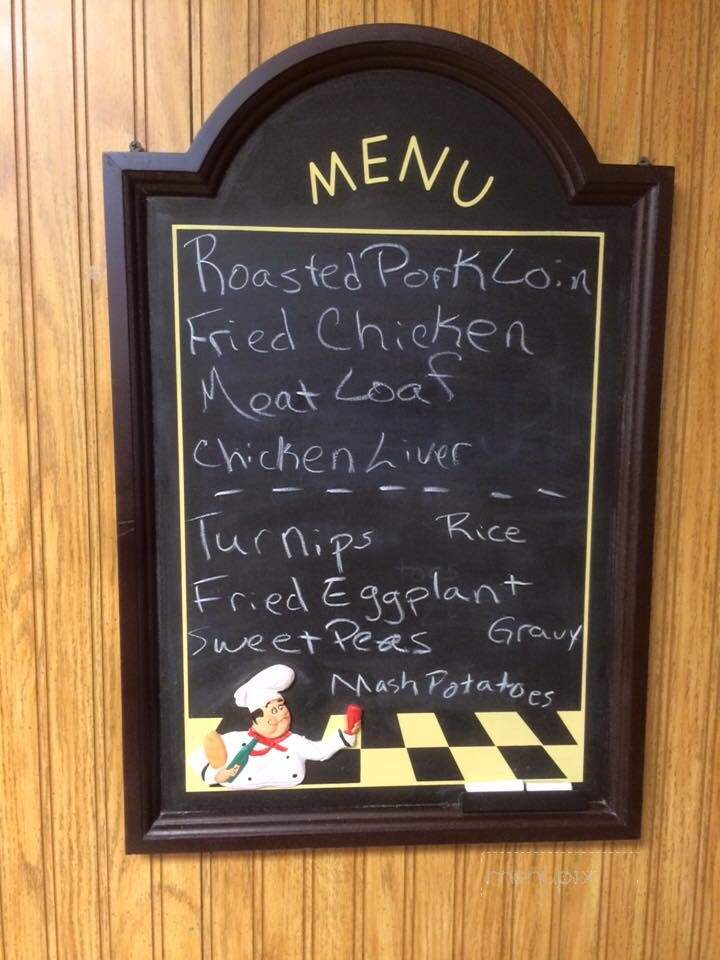 MENU
Roasted Pork Loin
Fried Chicken
Meat Loaf
Chicken Liver
Turnips Rice
Fried Eggplant
Sweet Peas Gravy
Mash Potatoes
menupix